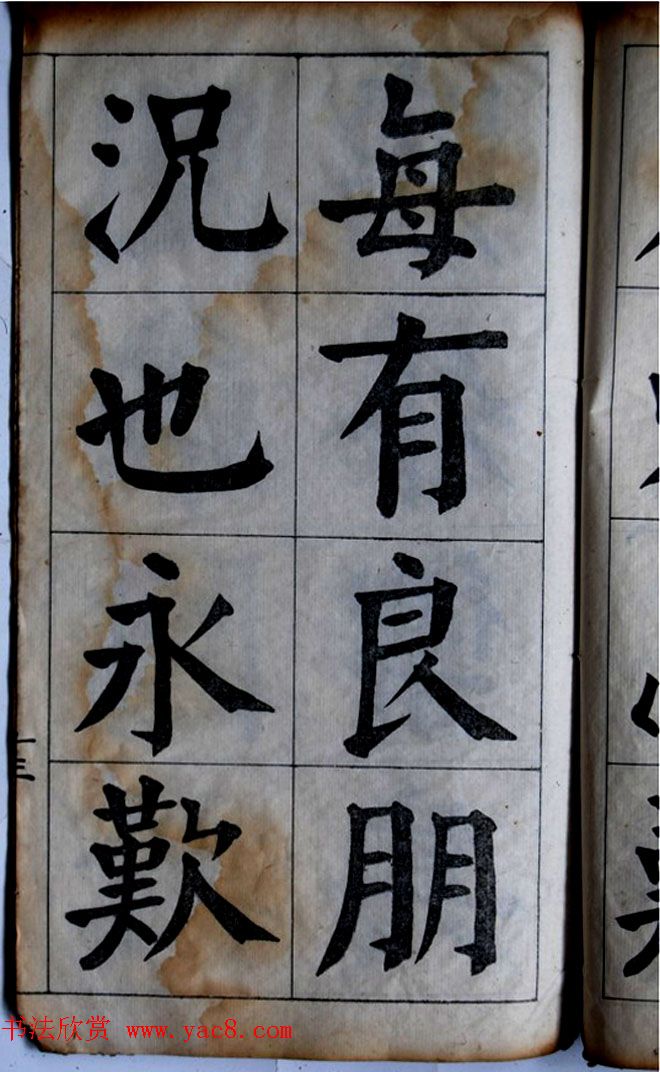 每有良朋
況也永歎
書法欣赏 www.yac8.com